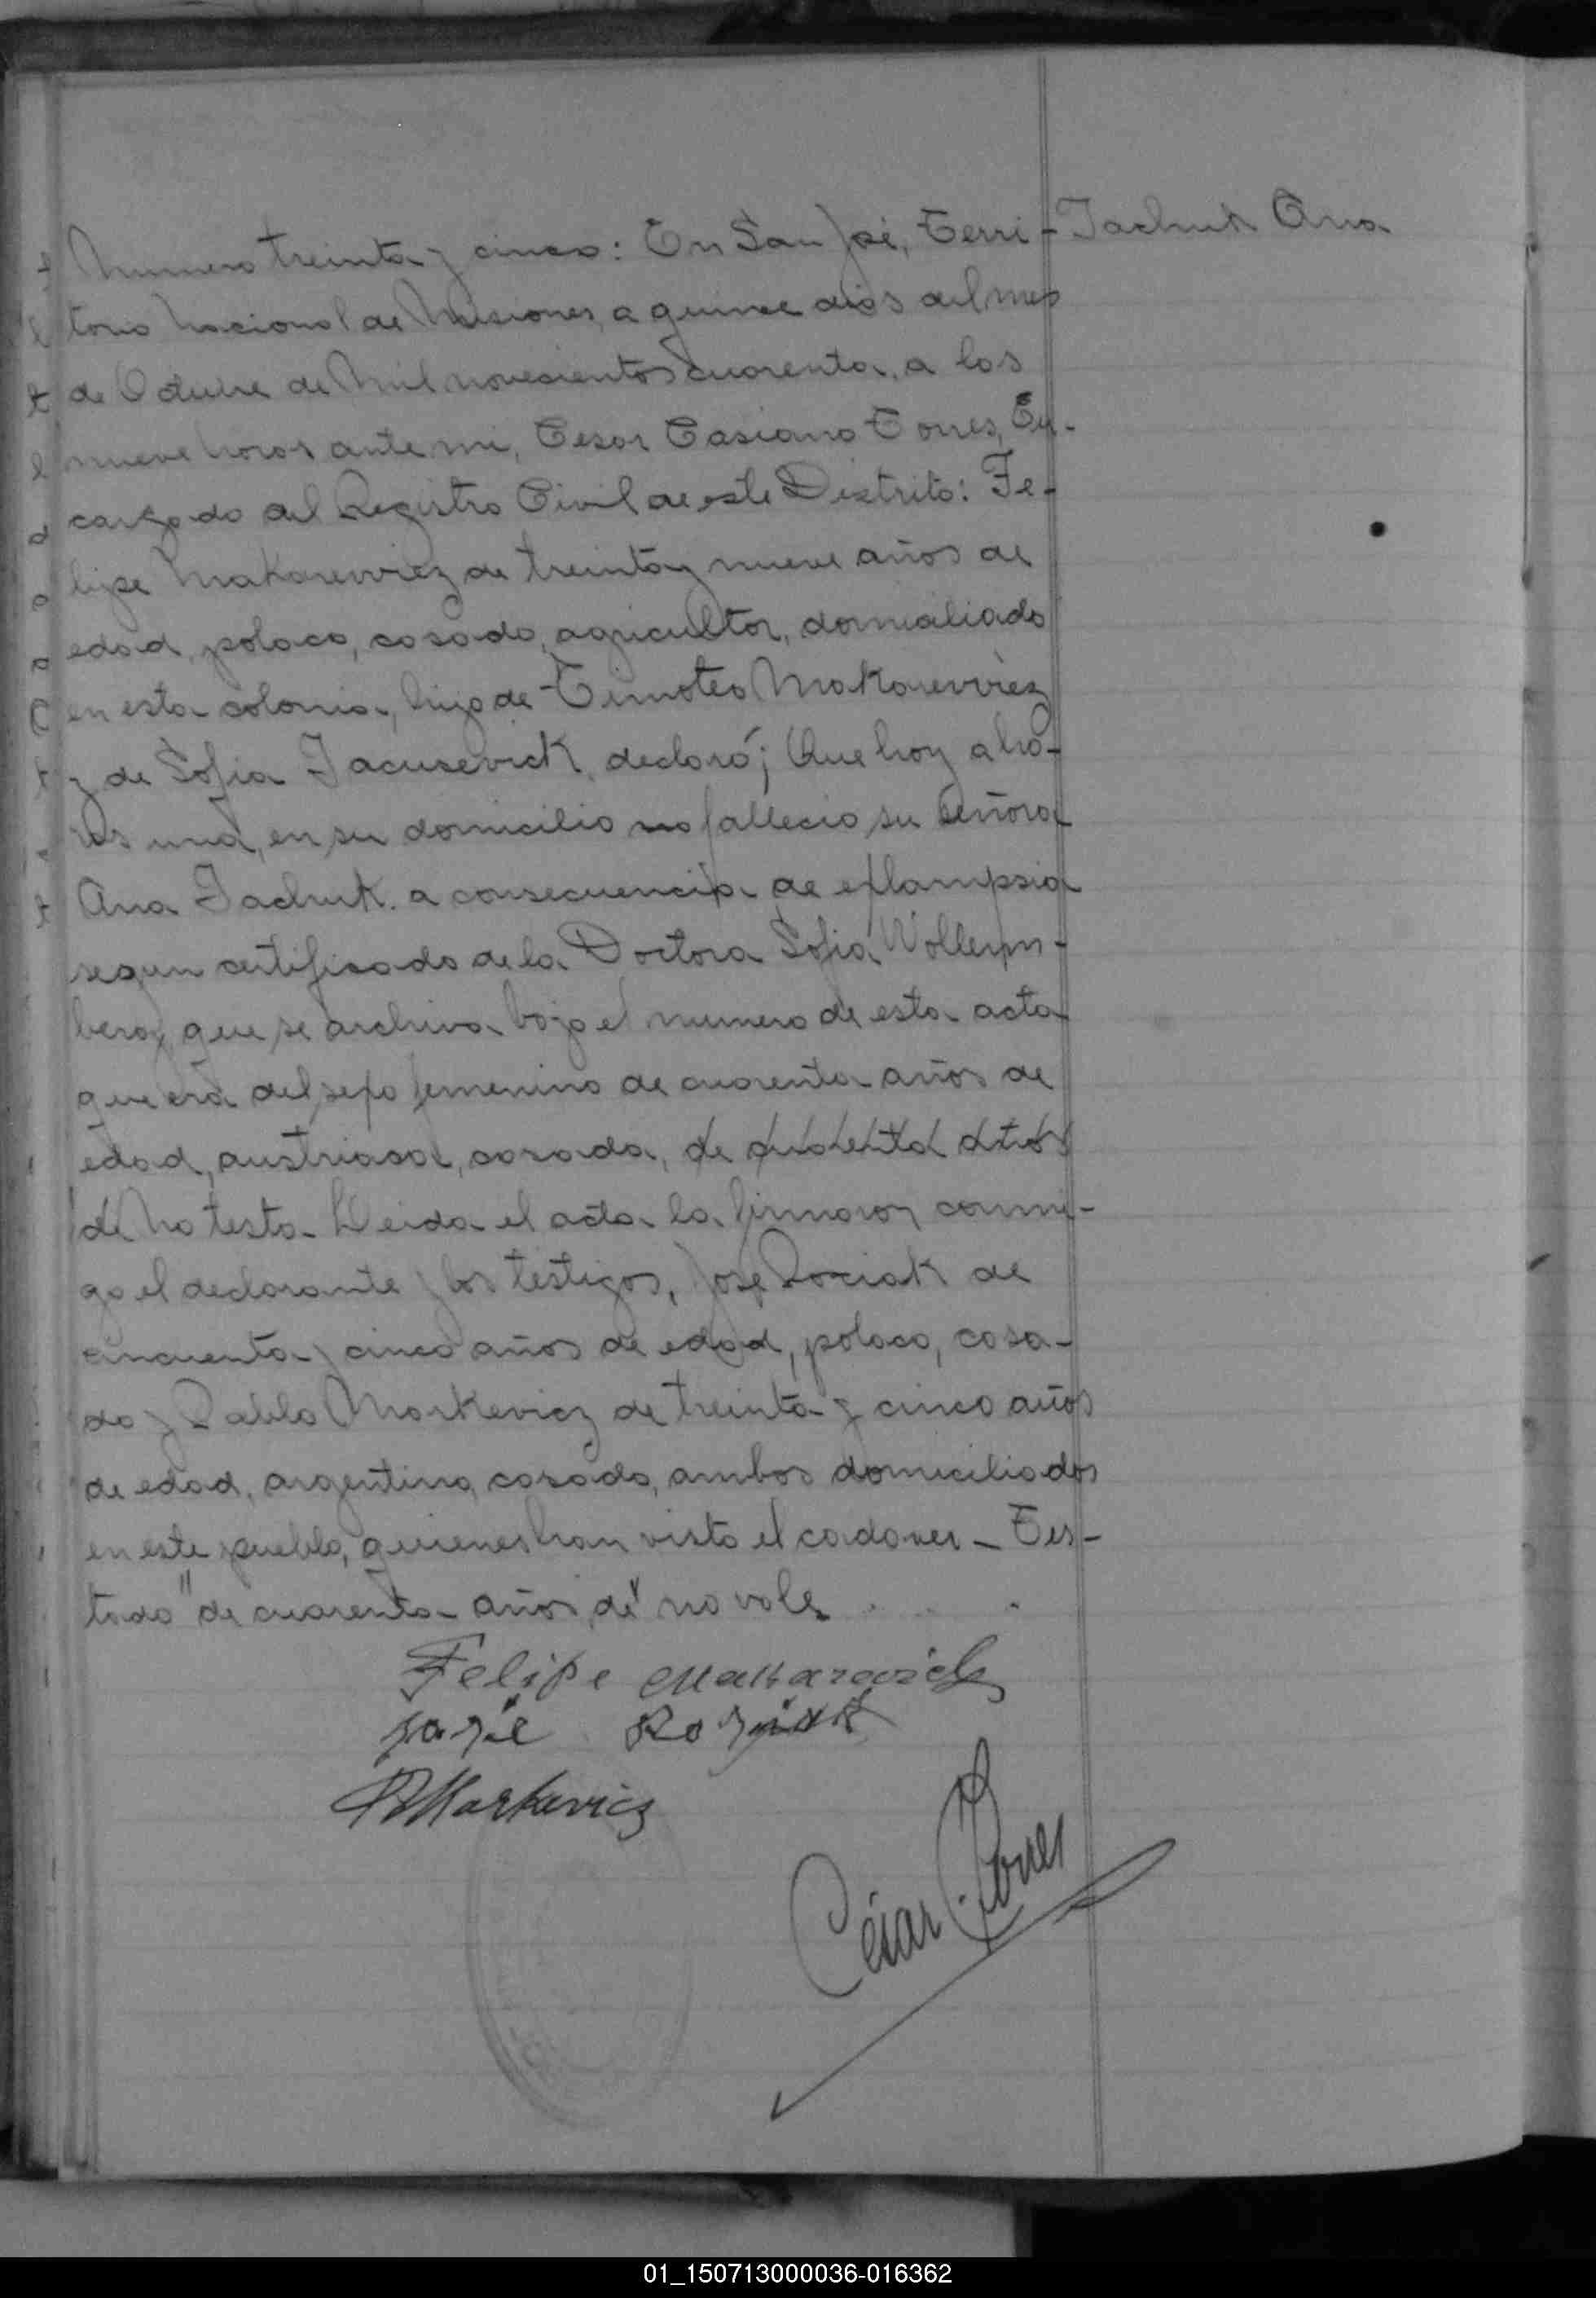 Numero treinta y cinco: En San José, Terri-
Iachuk Ana
torio Nacional de Misiones, a quince dias del mes
de Octubre de Mil novecientos cuarenta, a las
nueve horas ante mi, Cesar Casiano Torres, En-
cargado del Registro Civil de este Distrito: Fe-
lipe Makarewicz de treinta y nueve años de
edad, polaco, casado, agricultor, domiciliado
en esta colonia, hijo de Timoteo Makarewicz
y de Sofia Iacusevick, declaró; Que hoy a ho-
ras una, en su domicilio fallecio su señora
Ana Iachuk. a consecuencia de eclampsia
segun certificado de la Doctora Sofia
que se archiva bajo el numero de esta acta
que era del sexo femenino de cuarenta años de
edad, austriaca, casada, de cuarenta años
de No testa. Leida el acta la firmaron conmi-
go el declarante y los testigos, José Rociak de
cincuenta y cinco años de edad, polaco, casa-
do y Pablo Markevicz de treinta y cinco años
de edad, argentino, casado, ambos domiciliados
en este pueblo, quienes han visto el cadaver - Tes-
tado "de cuarenta años de" no vale
Felipe Makarewicz
PMarkevicz
César Torres
01_150713000036-016362